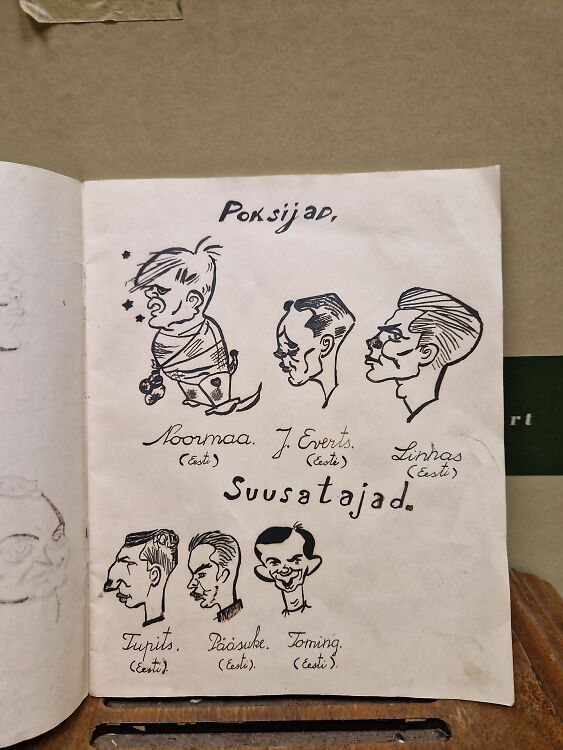 Poksijad.
Noormaa. J. Everts. Linhas
(Eesti) (Eesti) (Eesti)
Suusatajad.
Tupits. Pääsuke. Toming.
(Eesti). (Eesti). (Eesti).
rt